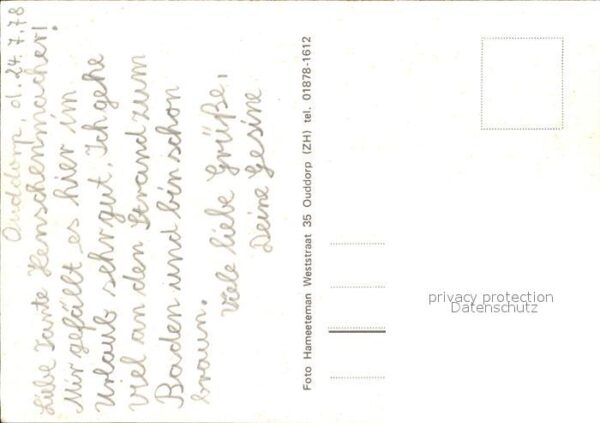 Ouddorp, d. 24. 7. 78
Liebe Tante Henschenmacher!
Mir gefällt es hier im
Urlaub sehr gut. Ich gehe
viel an den Strand zum
Baden und bin schon
braun.
Viele liebe Grüße,
Deine Gesine
Foto Hameeteman Weststraat 35 Ouddorp (ZH) tel. 01878-1612
privacy protection
Datenschutz